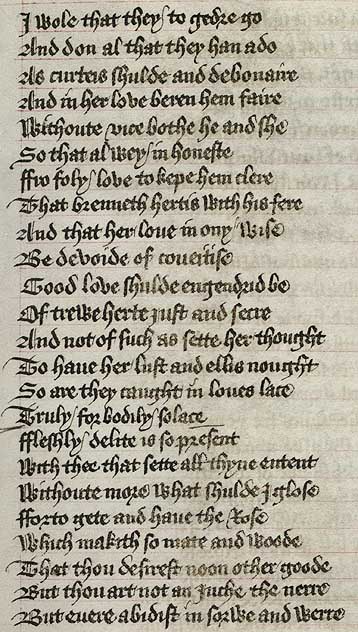 I wole that they to gedre go
And don al that they han ado
As curteis shulde and debonaire
And in her love beren hem faire
Withoute vice bothe he and she
So that alwey in honeste
ffro foly love to kepe hem clere
That brenneth hertis with his fere
And that her loue in ony wise
Be devoide of coueitise
Good love shulde engendrid be
Of trewe herte iust and secre
And not of such as sette her thought
To haue her lust and ellis nought
So are they caught in loues lace
Truly for bodily solace
fflesshly delite is so present
With thee that sette all thyne entent
Withoute more what shulde I glose
fforto gete and haue the Rose
Which makith so mate and woode
That thou desirest noon other goode
But thou art not an inche the nerre
But euere abidist in sorwe and werre